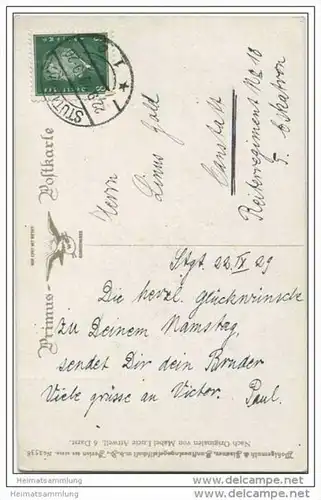 Primus- Postkarte
Herrn
Linus Gold
Canstatt
Reiterregiment No 18
5. Eskatron
Stgt 22.IX 29
Die herzl. Glückwünsche
zu Deinem Namstag,
sendet Dir dein Bruder
Viele grüsse an Victor. Paul.
Nach Originalen von Mabel Lucie Attwell, 6 Darst.
Heimatsammlung
Heimatsammlung